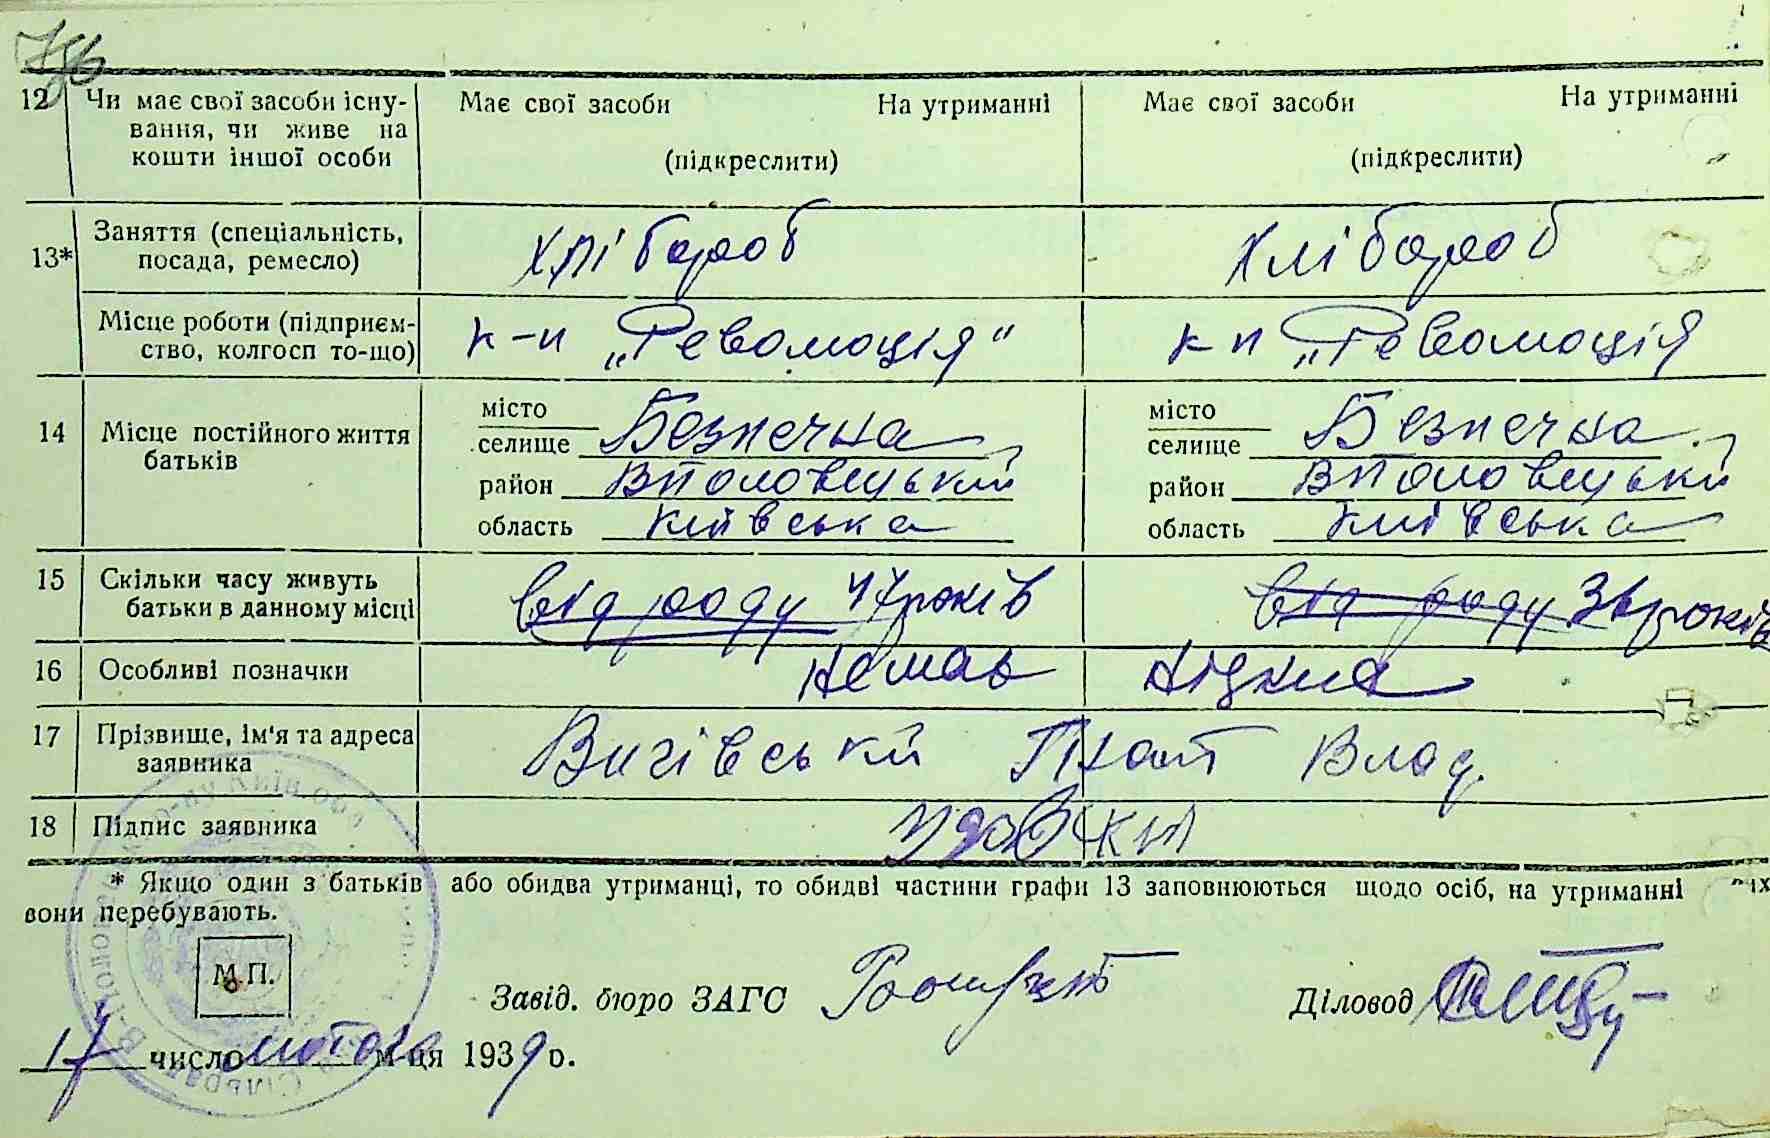 12 Чи має свої засоби існу- Має свої засоби На утриманні Має свої засоби На утриманні
вання, чи живе на
кошти іншої особи (підкреслити) (підкреслити)
13* Заняття (спеціальність, Хлібороб Хлібороб
посада, ремесло)
Місце роботи (підприєм- к-п „Революція“ к п „Революція
ство, колгосп то-що)
14 Місце постійного життя місто місто
батьків селище Безпечна селище Безпечна
район Вполовецький район Вполовецький
область Київська область Київська
15 Скільки часу живуть від роду 47 років від роду років
батьки в данному місці
16 Особливі позначки немає
17 Прізвище, ім'я та адреса Вигівський Гнат Влад.
заявника
18 Підпис заявника
* Якщо один з батьків або обидва утриманці, то обидві частини графи 13 заповнюються щодо осіб, на утриманні
вони перебувають.
М.П.
Завід. бюро ЗАГС Діловод
17 число лютого м-ця 1939 р.